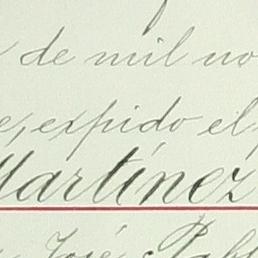 de mil no
e, expido el
Martínez
José Pabl